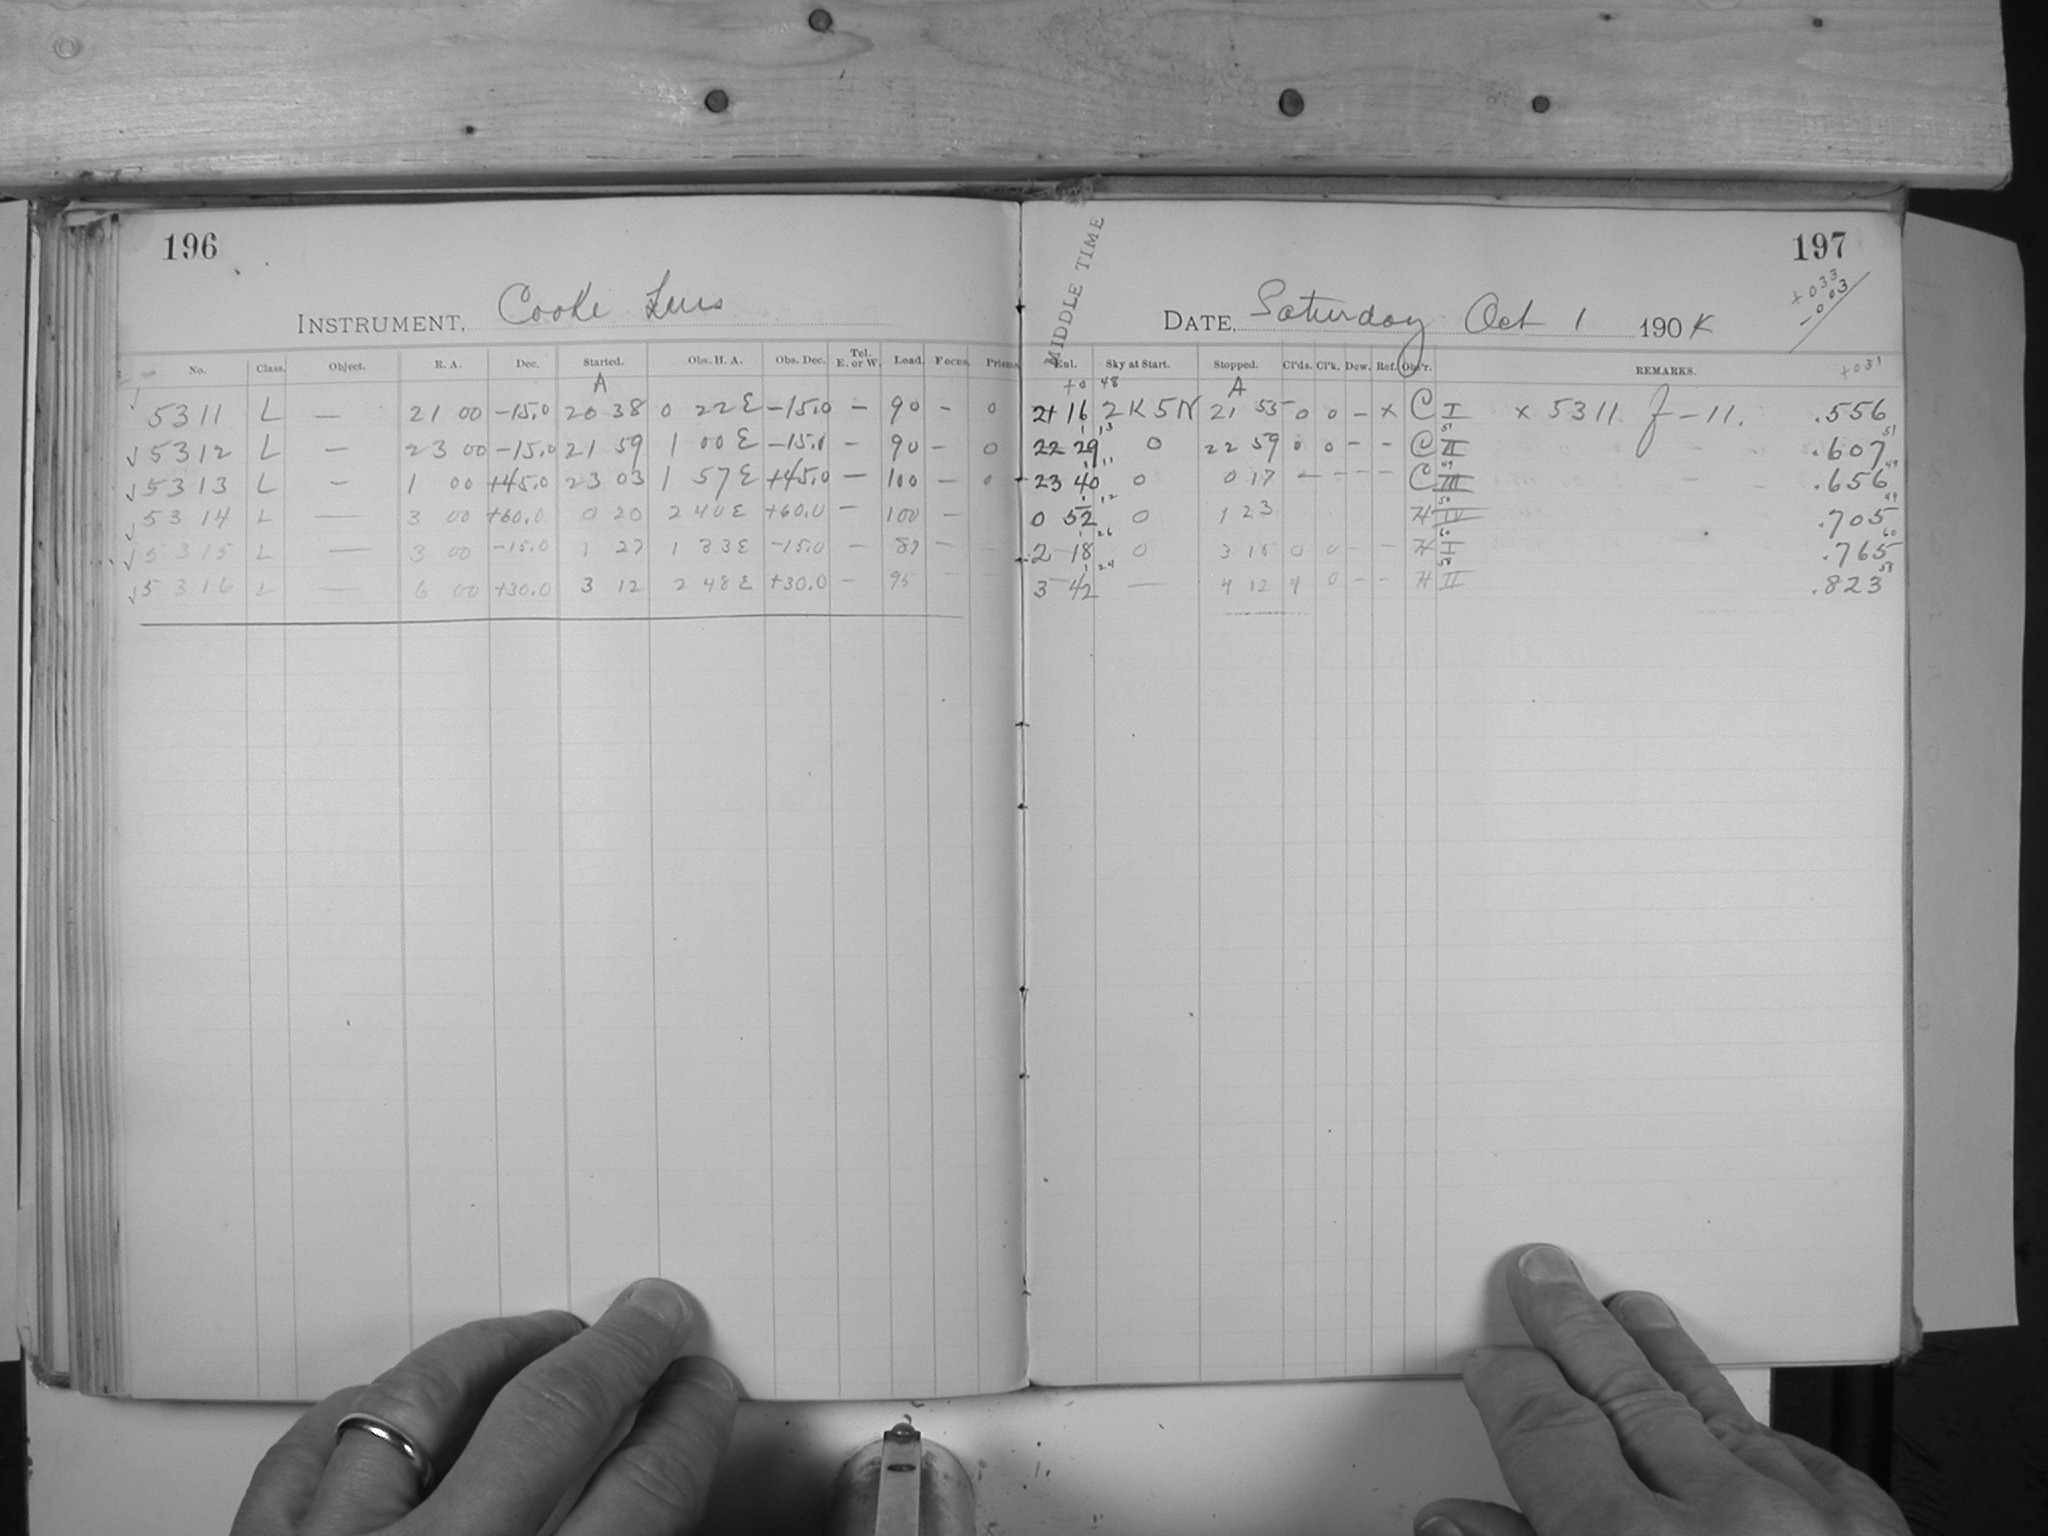 196
INSTRUMENT, Cooke Lens
No. Class. Object. R. A. Dec. Started. Obs. H. A. Obs. Dec. Tel. E. or W. Load. Focus. Prisms
A
5311 L — 21 00 -15.0 20 38 0 22 E -15.0 — 90 - 0
√ 5312 L — 23 00 -15.0 21 59 1 00 E -15.0 - 90 - 0
√ 5313 L — 1 00 +45.0 23 03 1 57 E +45.0 — 100 - 0
5314 L — 3 00 +60.0 0 20 2 40 E +60.0 - 100 -
√ 5315 L — 3 00 -15.0 1 27 1 33 E -15.0 - 89 - -
√ 5316 L — 6 00 +30.0 3 12 2 48 E +30.0 - 95 - -
MIDDLE TIME
197
+033
-003
DATE, Saturday Oct 1 190
Enl. Sky at Start. Stopped. Cl'ds. Cl'k. Dew. Ref. Obs'r. REMARKS. +031
+0 48 A
21 16 2K5N 21 55 0 0 - x C I x 5311 f-11. .556
22 29 0 22 59 0 0 - - C II .607
23 40 0 0 17 - - - - C III .656
0 52 0 1 23 H IV .705
2 18 0 3 15 0 0 - - H I .765
3 42 — 4 12 4 0 - - H II .823